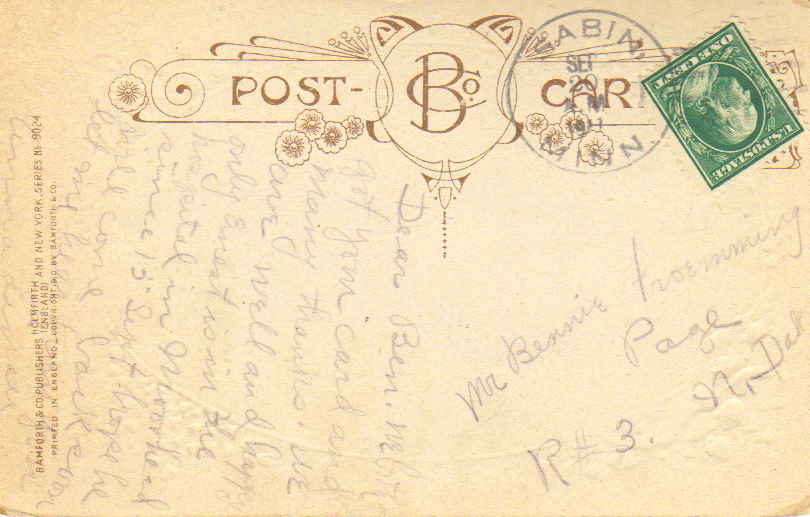 POST-
B Co.
CAR
SABIN,
SEP
20
A M
1911
MINN.
ONE CENT
U.S. POSTAGE
Dear Ben. We
got your card and
many thanks. We
are well and happy
only Ernst is in the
hospital in Moorhead
since 15 Sept. hope he
will come back
my
Mr Bennie Froemming
Page
R # 3. N. Dak
BAMFORTH & CO. PUBLISHERS HOLMFIRTH AND NEW YORK. SERIES No 9024
(ENGLAND)
PRINTED IN ENGLAND. COPYRIGHT 1910 BY BAMFORTH & CO.